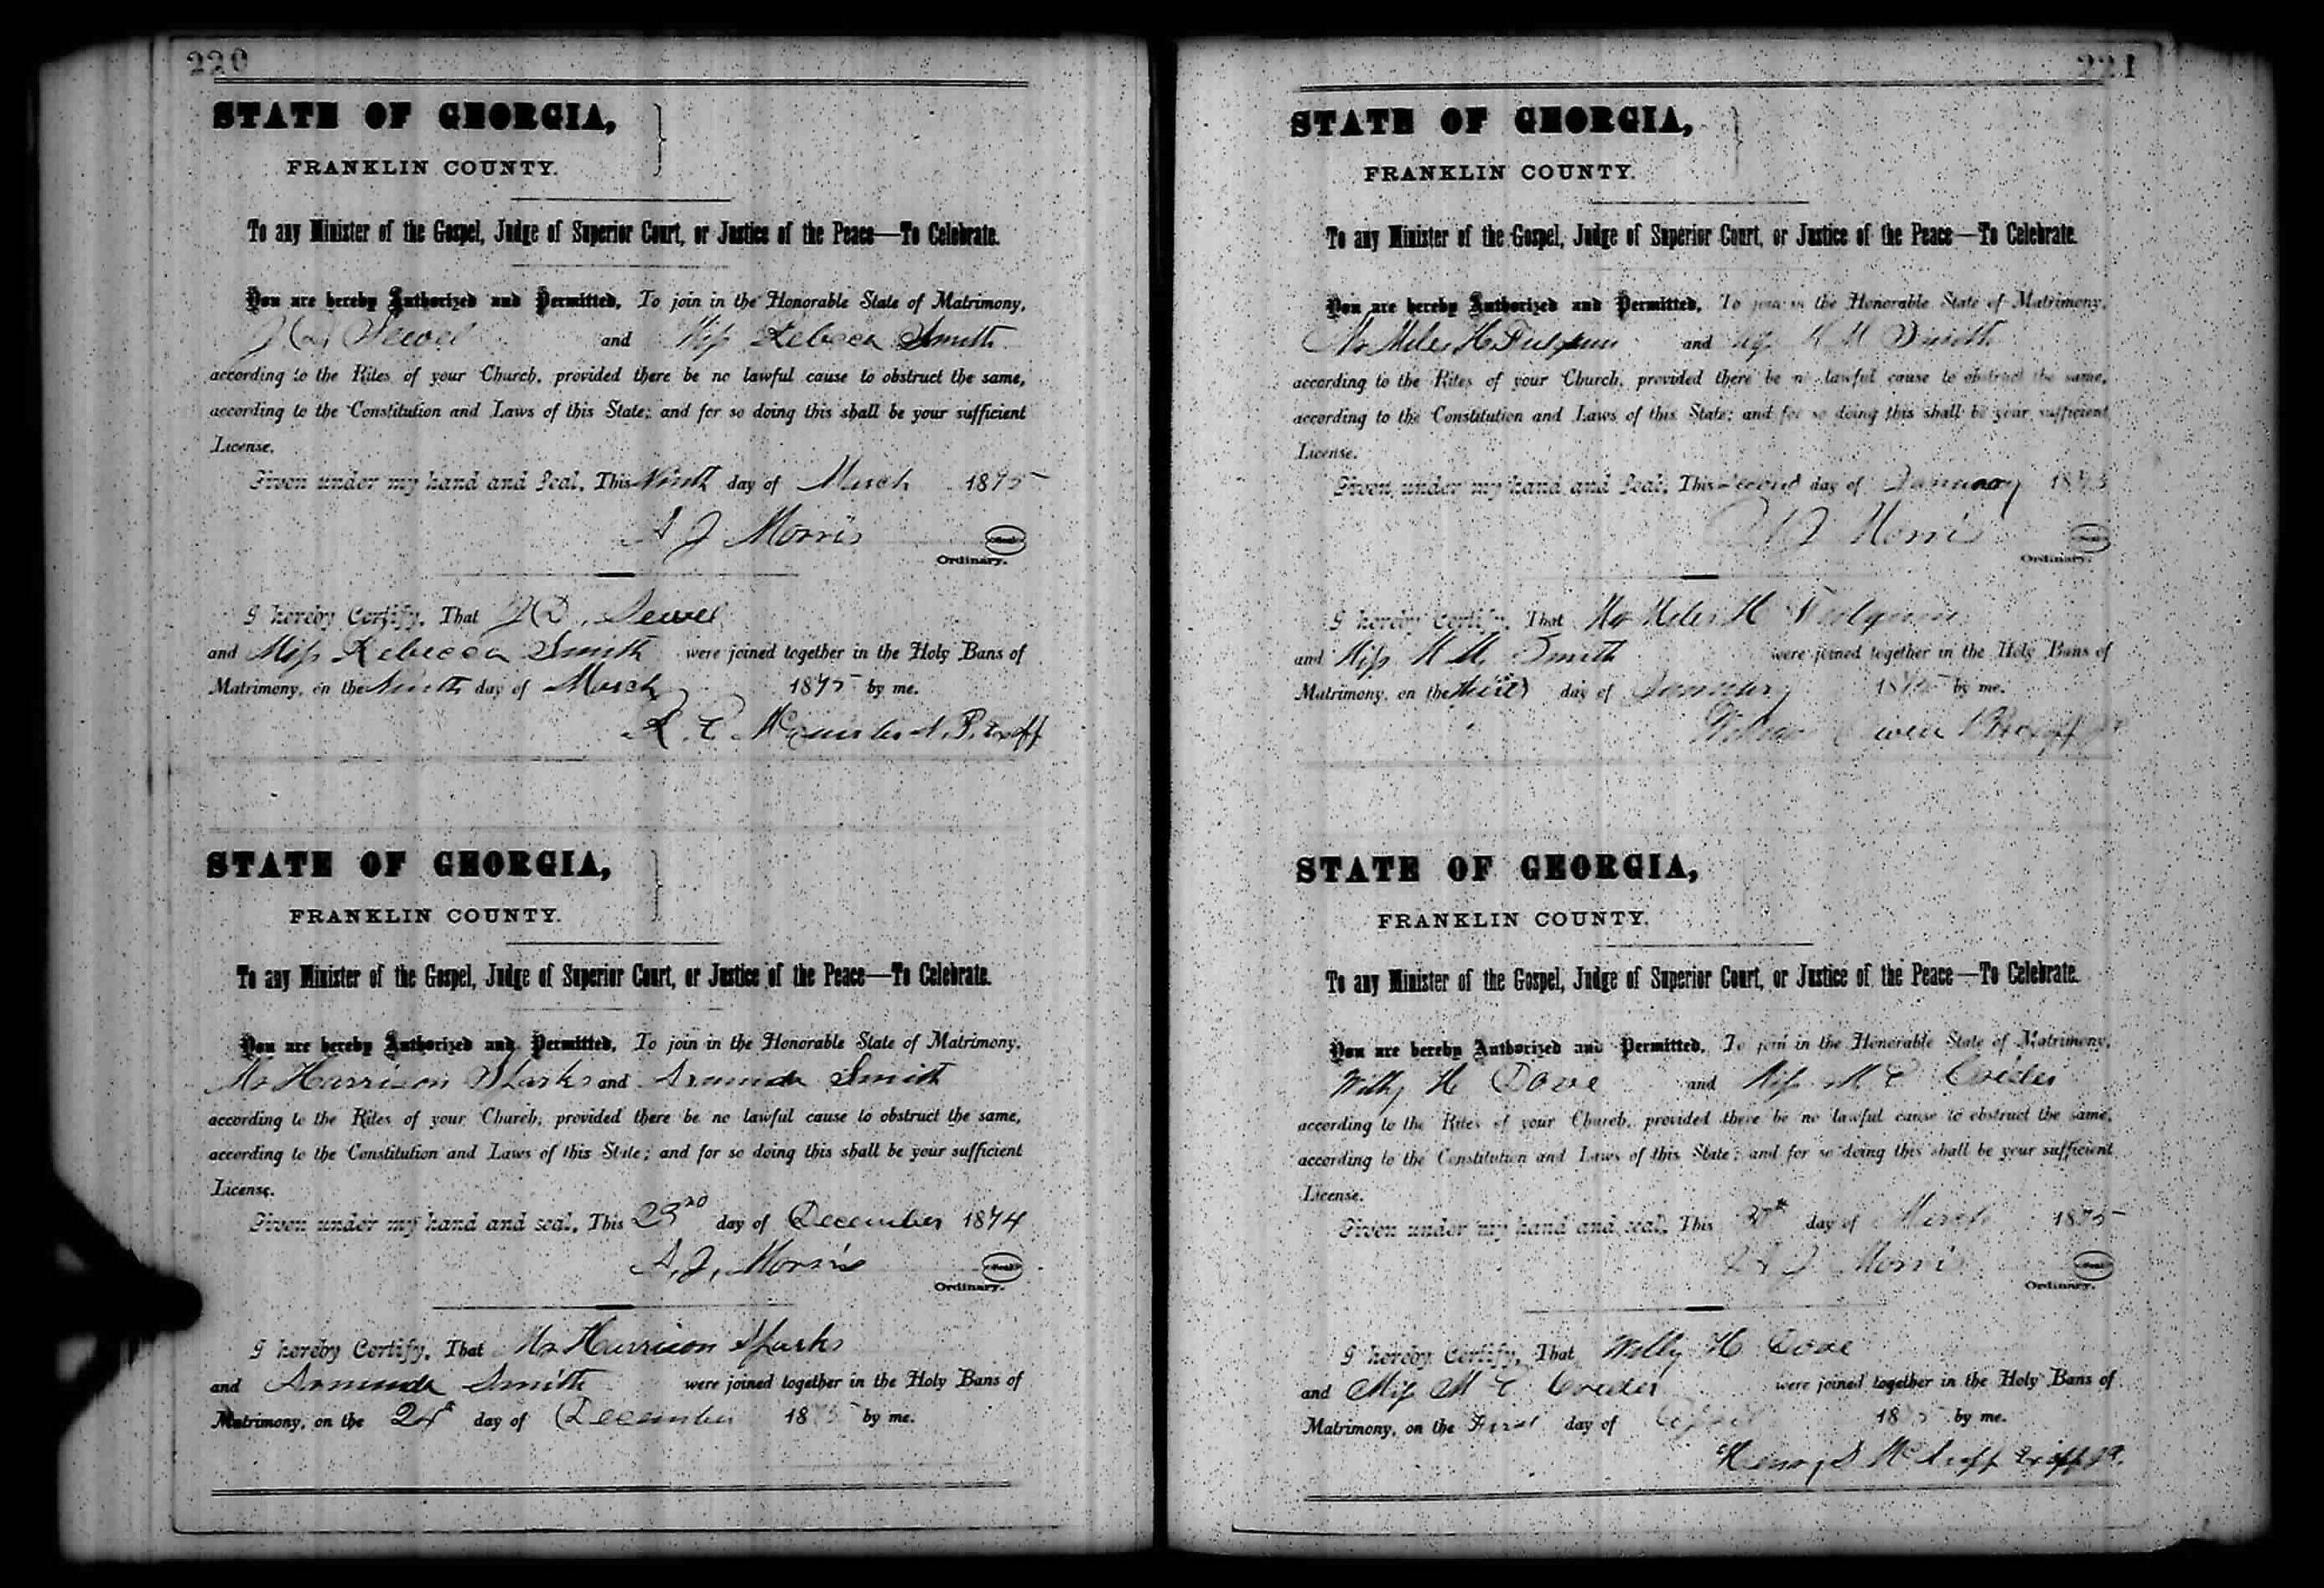 220
STATE OF GEORGIA,
FRANKLIN COUNTY.
To any Minister of the Gospel, Judge of Superior Court, or Justice of the Peace—To Celebrate.
You are hereby Authorized and Permitted, To join in the Honorable State of Matrimony,
Sewel and Miss Rebeca Smith
according to the Rites of your Church, provided there be no lawful cause to obstruct the same,
according to the Constitution and Laws of this State; and for so doing this shall be your sufficient
License.
Given under my hand and Seal, This Ninth day of March 1875
A J Morris
Ordinary.
I hereby Certify, That J D. Sewel
and Miss Rebecca Smith were joined together in the Holy Bans of
Matrimony, on the Ninth day of March 1875 by me.
R. C.
STATE OF GEORGIA,
FRANKLIN COUNTY.
To any Minister of the Gospel, Judge of Superior Court, or Justice of the Peace—To Celebrate.
You are hereby Authorized and Permitted, To join in the Honorable State of Matrimony,
Mr Harrison Sparks and Smith
according to the Rites of your Church, provided there be no lawful cause to obstruct the same,
according to the Constitution and Laws of this State; and for so doing this shall be your sufficient
License.
Given under my hand and seal, This 23rd day of December 1874
A. J. Morris
Ordinary.
I hereby Certify, That Mr Harrison Sparks
and Smith were joined together in the Holy Bans of
Matrimony, on the 24th day of December 1875 by me.
221
STATE OF GEORGIA,
FRANKLIN COUNTY.
To any Minister of the Gospel, Judge of Superior Court, or Justice of the Peace—To Celebrate.
You are hereby Authorized and Permitted, To join in the Honorable State of Matrimony,
Mr Miles H and M Smith
according to the Rites of your Church, provided there be no lawful cause to obstruct the same,
according to the Constitution and Laws of this State; and for so doing this shall be your sufficient
License.
Given under my hand and Seal, This Second day of January 187
A J Morris
Ordinary.
I hereby Certify, That Mr Miles H
and Miss M. Smith were joined together in the Holy Bans of
Matrimony, on the third day of January 1875 by me.
STATE OF GEORGIA,
FRANKLIN COUNTY.
To any Minister of the Gospel, Judge of Superior Court, or Justice of the Peace—To Celebrate.
You are hereby Authorized and Permitted, To join in the Honorable State of Matrimony,
Willy H Dove and Miss M C
according to the Rites of your Church, provided there be no lawful cause to obstruct the same,
according to the Constitution and Laws of this State; and for so doing this shall be your sufficient
License.
Given under my hand and seal, This day of March 1875
A J Morris
Ordinary.
I hereby Certify, That Willy H Dove
and Miss M C were joined together in the Holy Bans of
Matrimony, on the First day of April 1875 by me.
Henry D